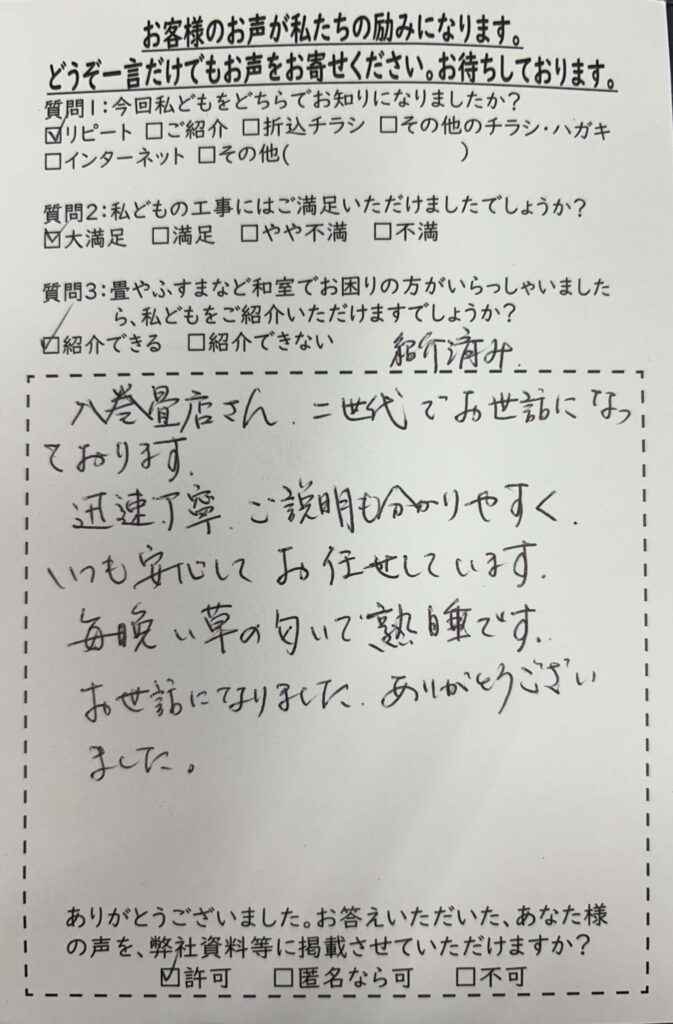 お客様のお声が私たちの励みになります。
どうぞ一言だけでもお声をお寄せください。お待ちしております。
質問1:今回私どもをどちらでお知りになりましたか?
☑リピート □ご紹介 □折込チラシ □その他のチラシ・ハガキ
□インターネット □その他( )
質問2:私どもの工事にはご満足いただけましたでしょうか?
☑大満足 □満足 □やや不満 □不満
質問3:畳やふすまなど和室でお困りの方がいらっしゃいました
ら、私どもをご紹介いただけますでしょうか?
☑紹介できる □紹介できない 紹介済み.
八巻畳店さん.二世代でお世話になっ
ております.
迅速丁寧.ご説明も分かりやすく.
いつも安心してお任せしています.
毎晩い草の匂いで熟睡です.
お世話になりました.ありがとうござい
ました。
ありがとうございました。お答えいただいた、あなた様
の声を、弊社資料等に掲載させていただけますか?
☑許可 □匿名なら可 □不可